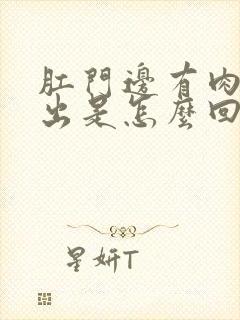 肛門邊有肉
出是怎麼回
星妍T